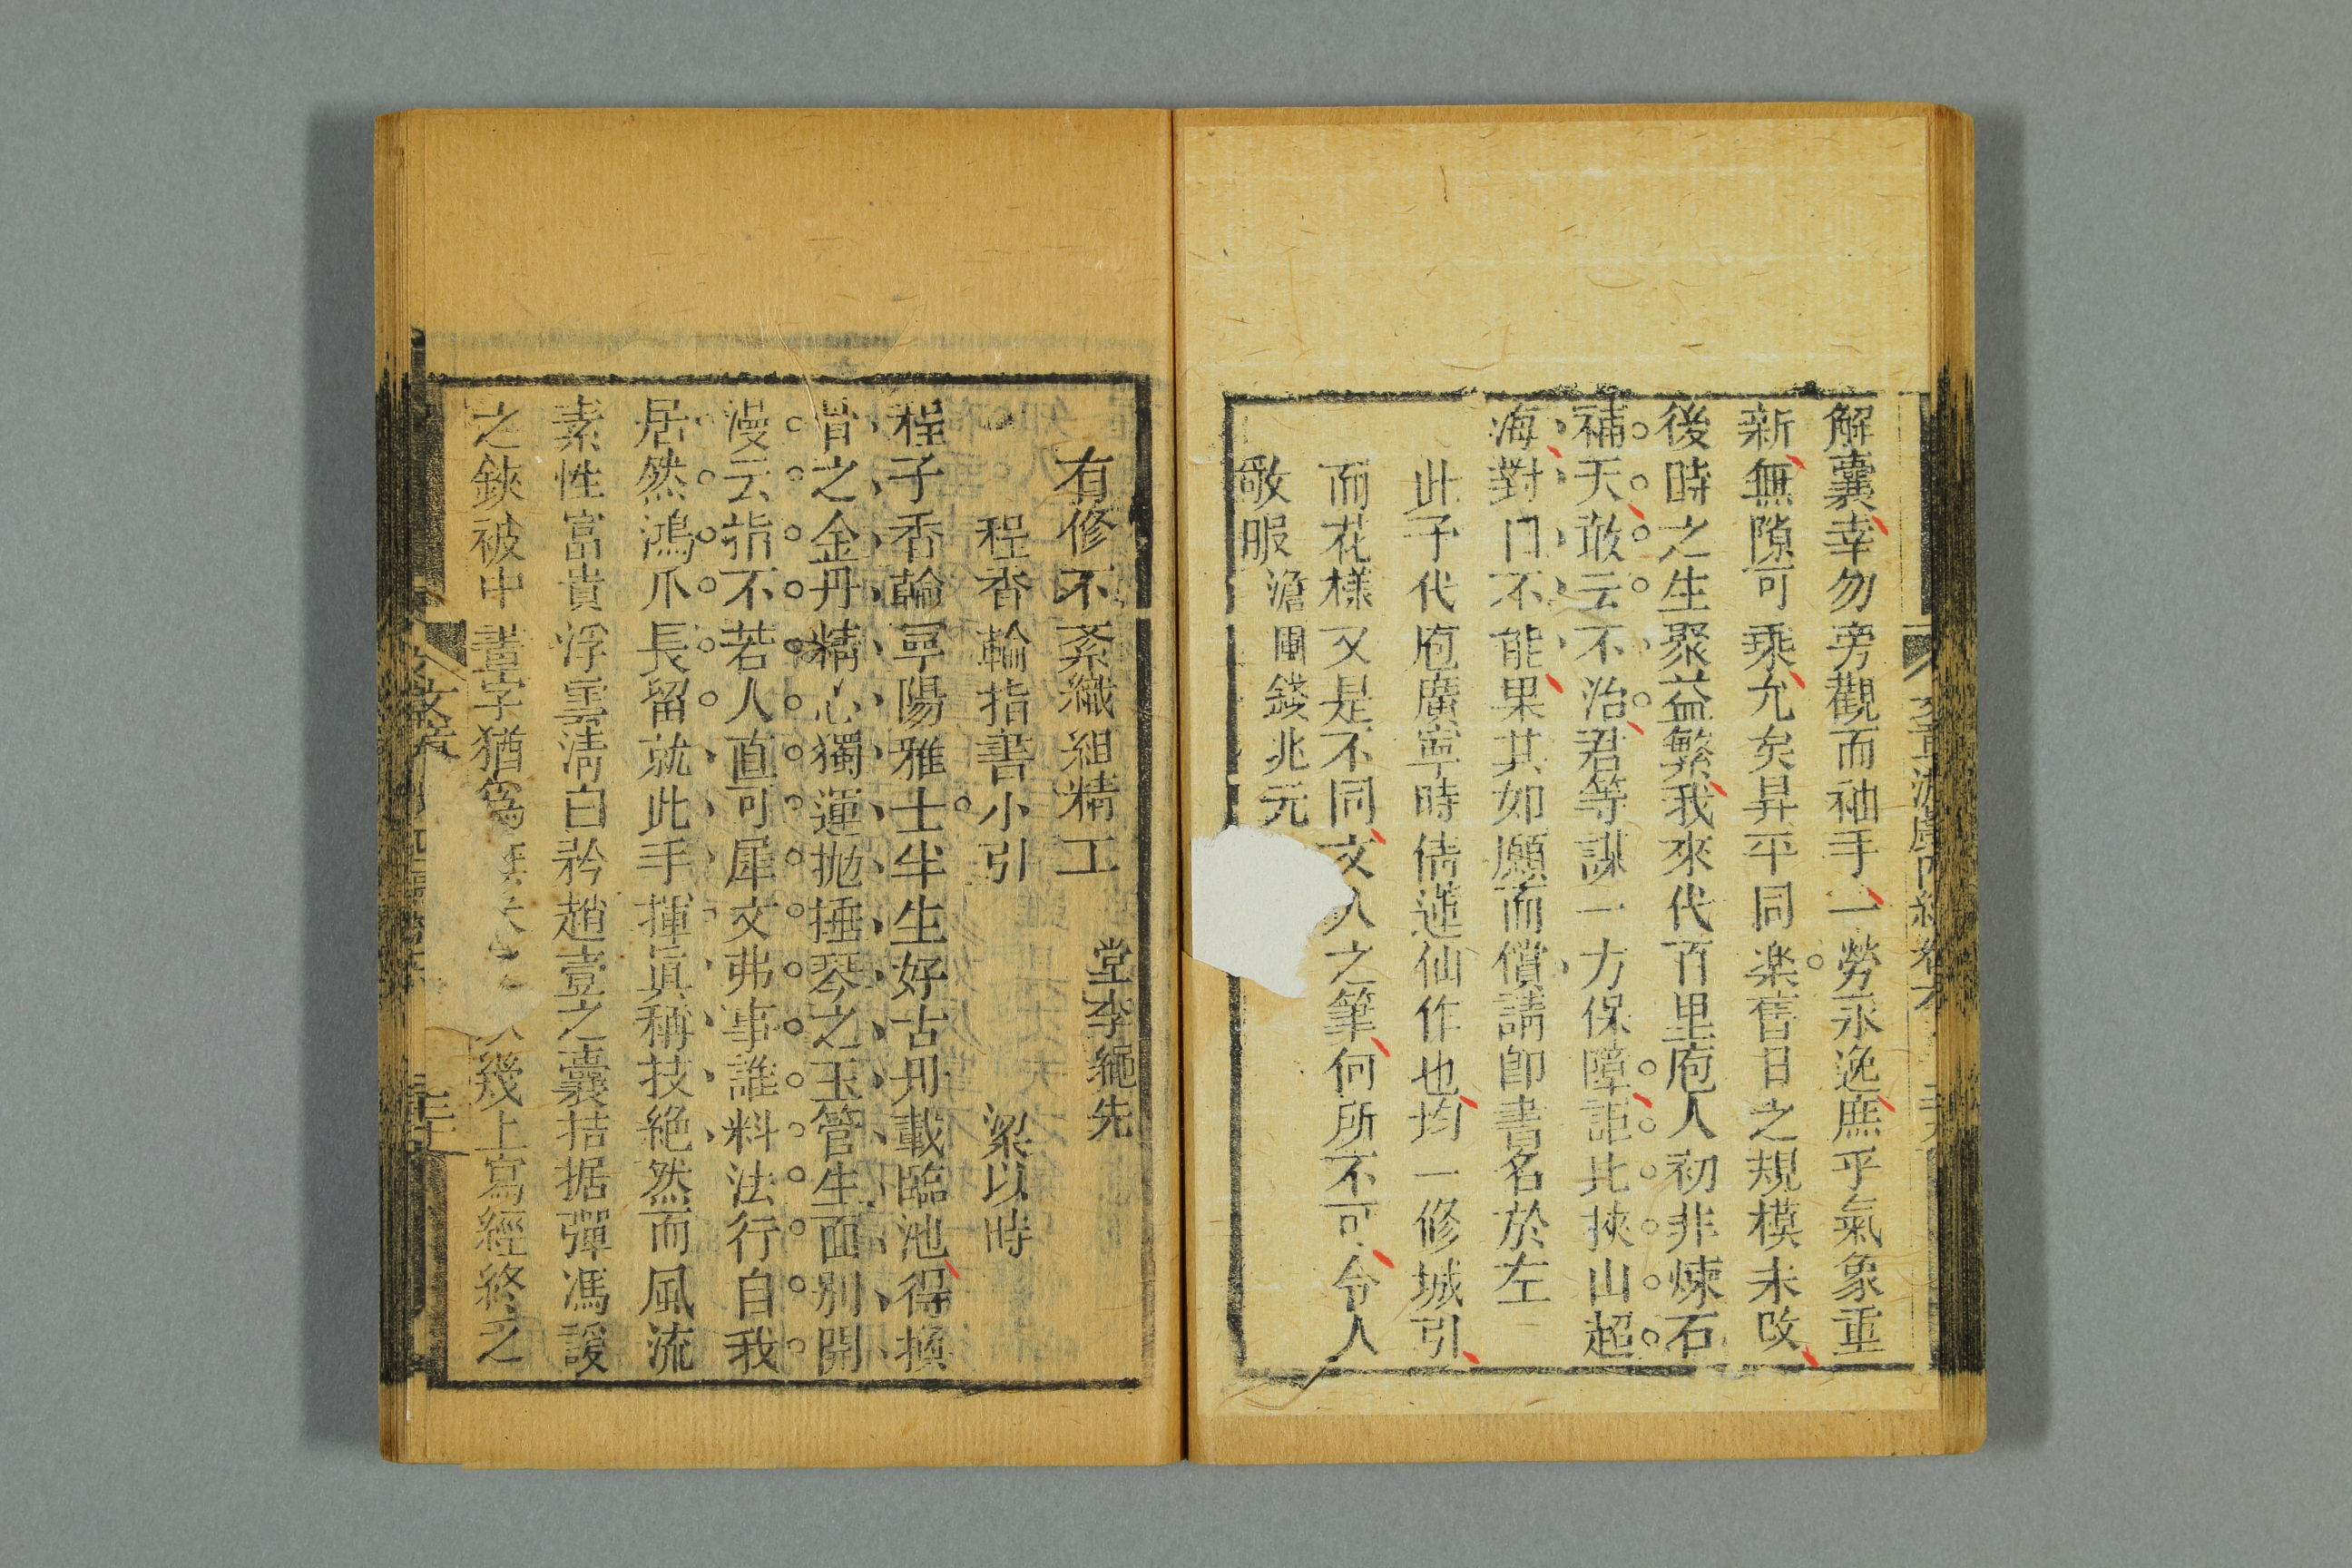 解囊幸勿旁觀而袖手一勞永逸庶乎氣象重
新無隙可乘允矣昇平同樂舊日之規模未改
後時之生聚益繁我來代百里庖人初非煉石
補天敢云不治君等謀一方保障詎比挾山超
海對日不能果其如願而償請即書名於左
此子代庖廣寧時倩蓮仙作也均一修城引
而花樣又是不同文人之筆何所不可令人
敬服 澹圃錢兆元
有修不紊織組精工 堂李繩先
程香輪指書小引 梁以時
程子香輪寧陽雅士半生好古卅載臨池得換
骨之金丹精心獨運拋捶琴之玉管生面別開
漫云指不若人直可犀文弗事誰料法行自我
居然鴻爪長留就此手揮眞稱技絶然而風流
素性富貴浮雲清白衿趙壹之囊拮据彈馮諼
之鋏被中畫字猶爲 幾上寫經終之